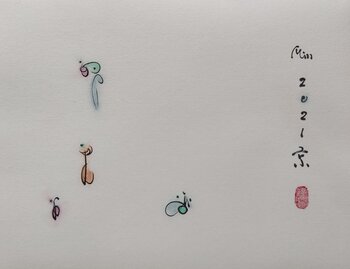 Min
2
0
2
1
京